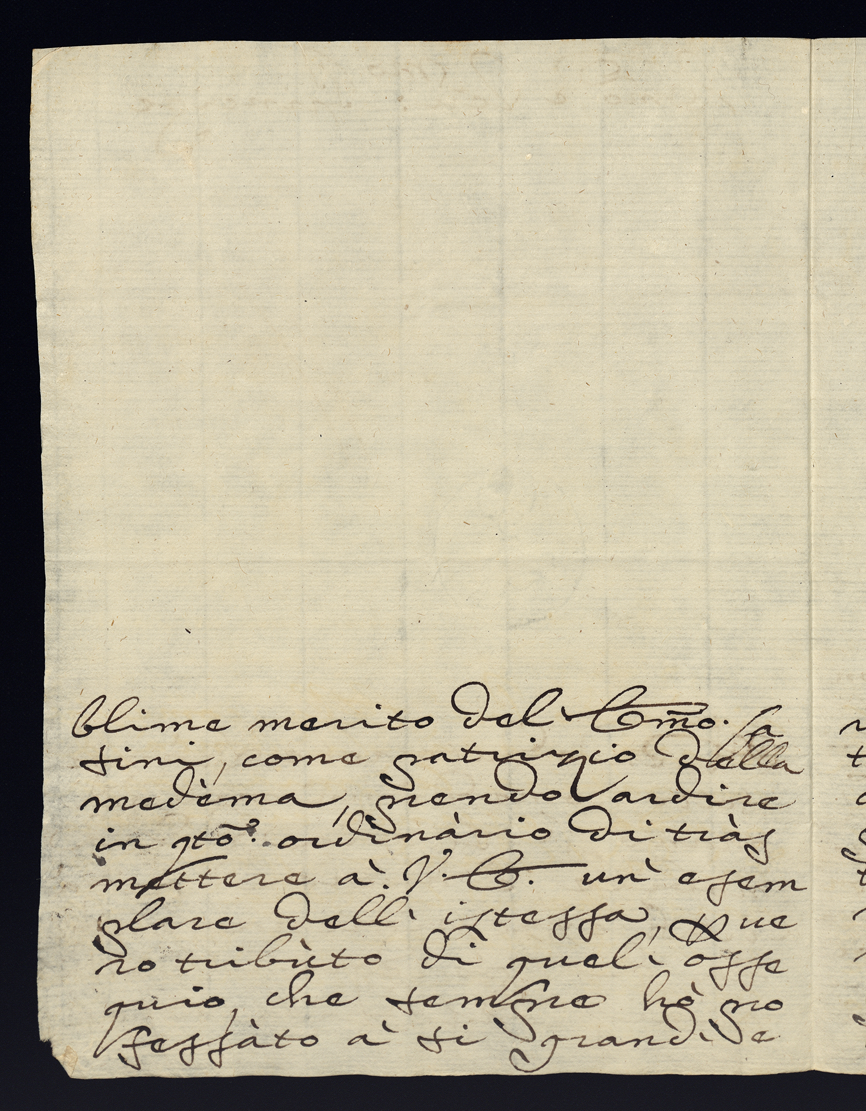 blime merito del' Em̃o. Sa
sini, come patrizio della
medèma, prendo l'ardire
in q̃to. ordinàrio di tràs
mettere à. V. E. un' esem
plare dell' istessa, pue
ro tribùto di quel' osse
quio, che sempre hò pro
fessàto à si grandi, e